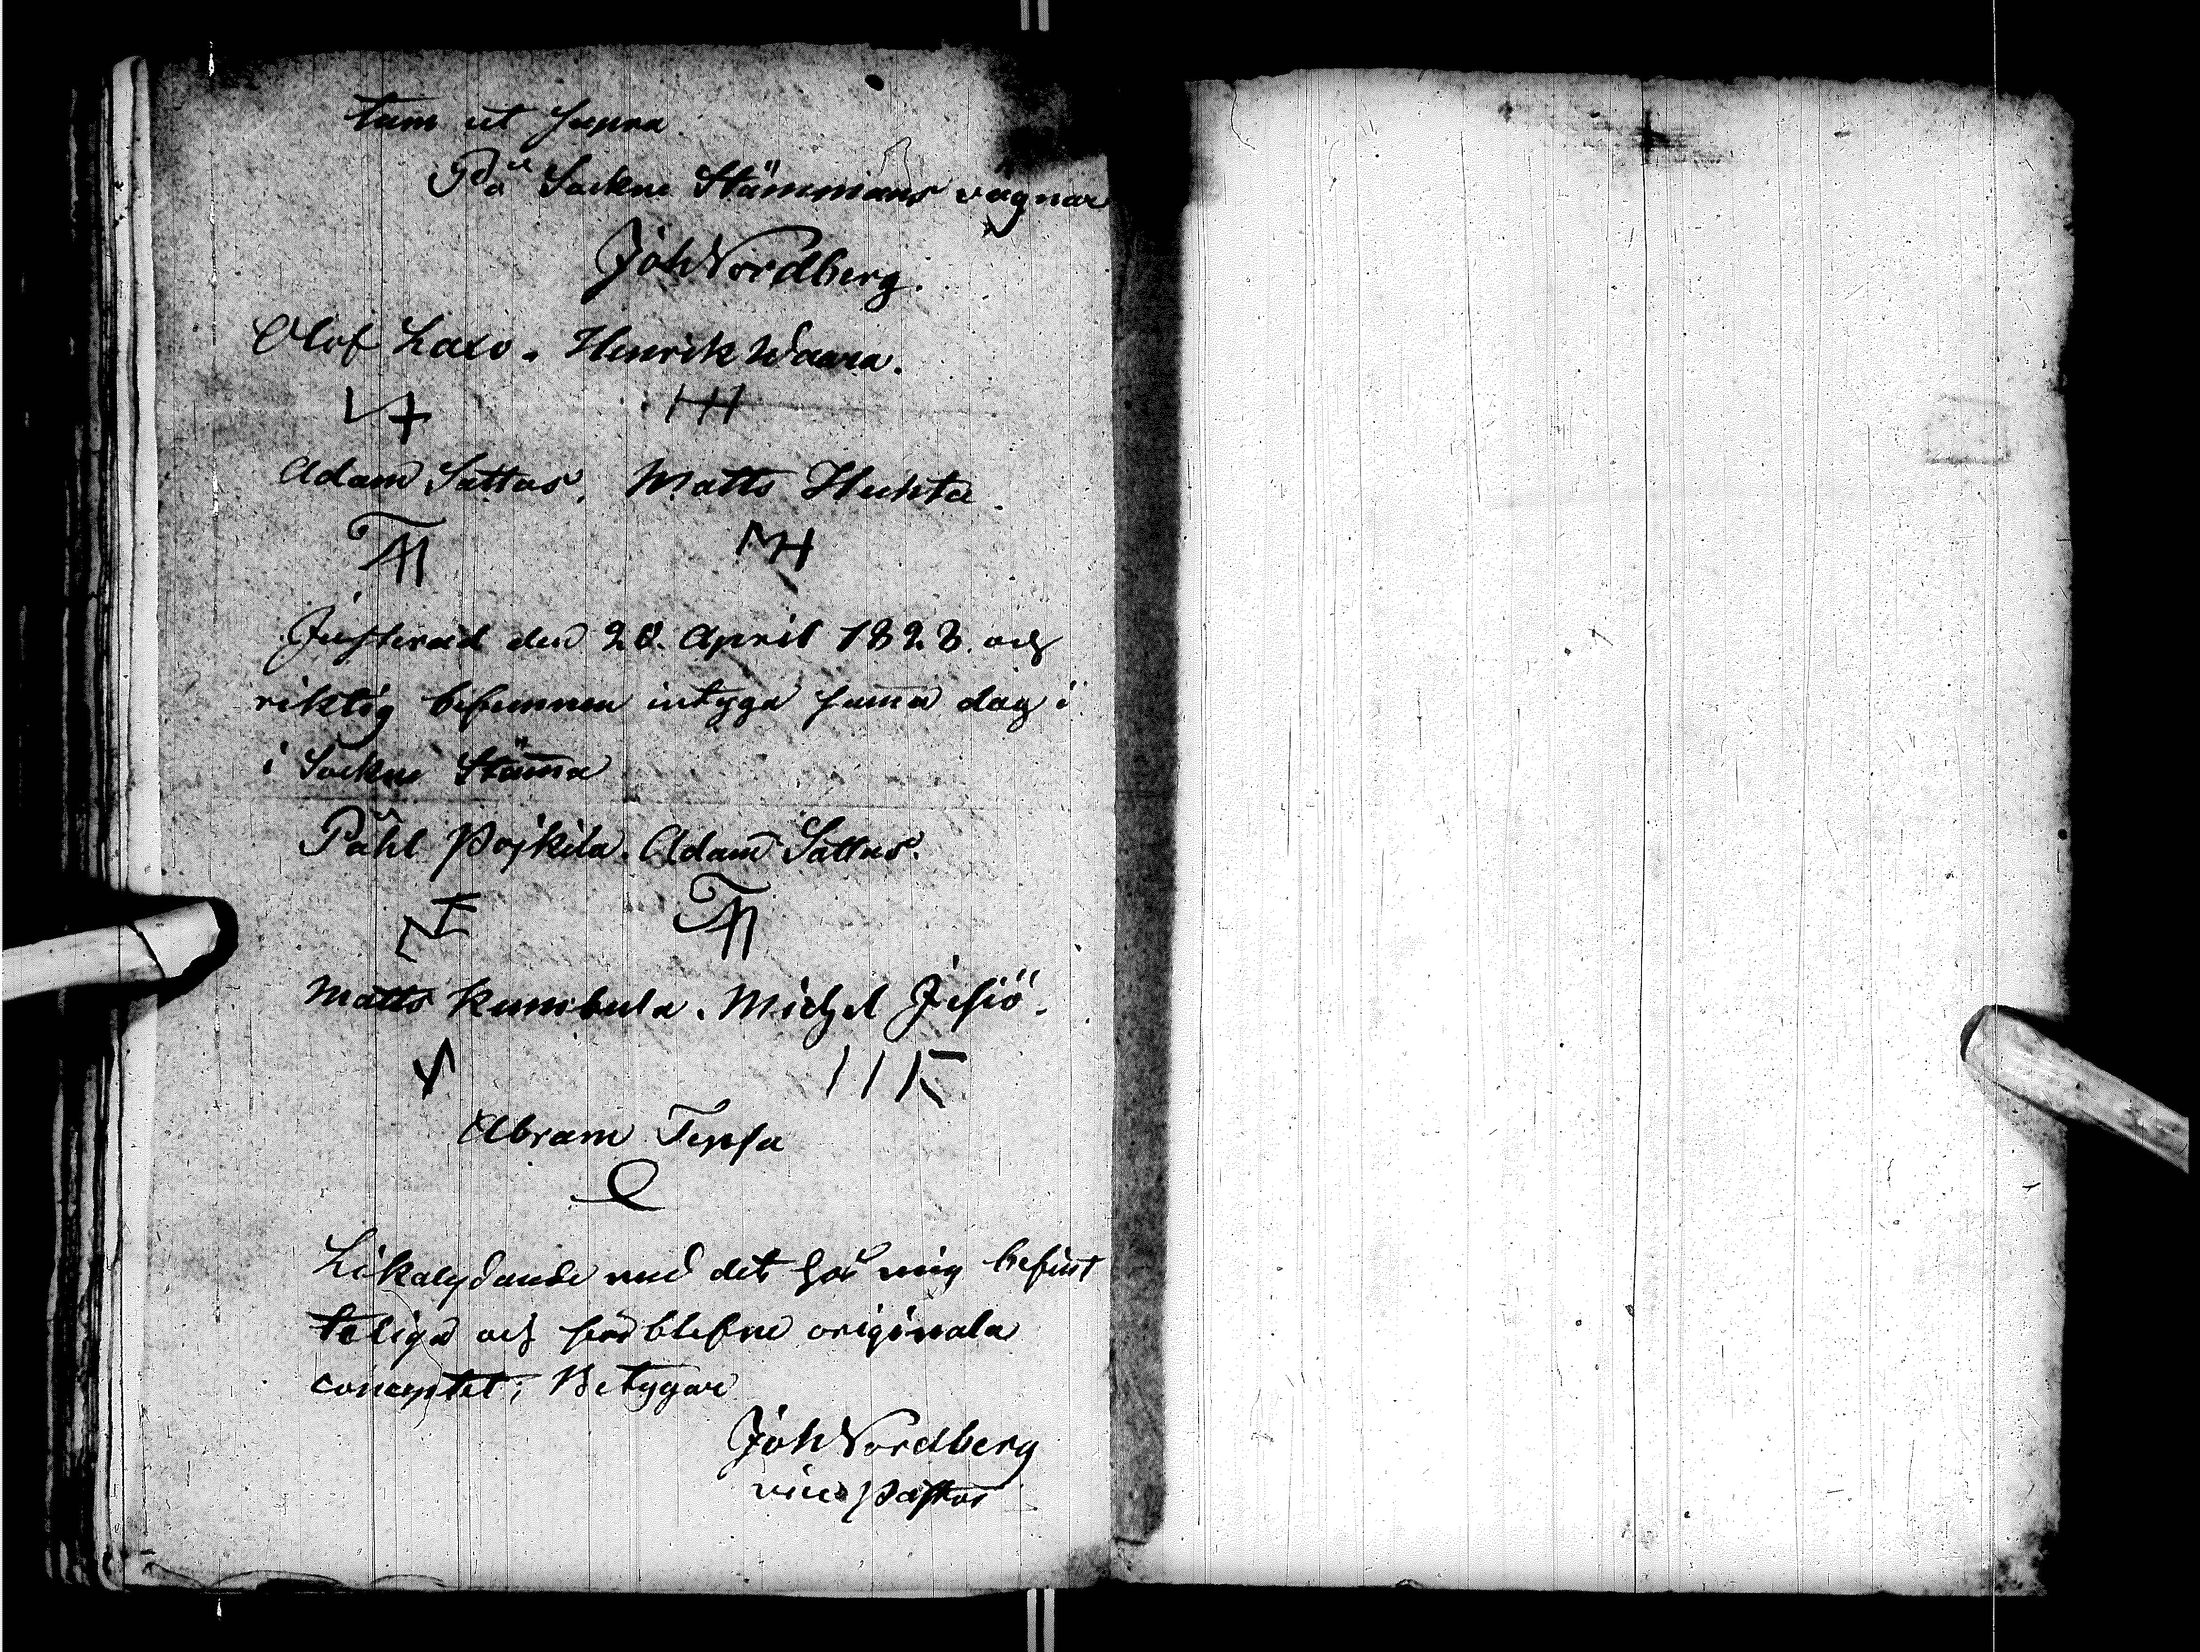 tum ut supra
På Sockne Stämmans vägnar
Joh Nordberg.
Olof Laxo. Henrik Waara.
Adam Sattus. Matts Huhta.
MH
Justerad den 20. April 1823. och
riktig befunnen intyga sam̄a dag i
i Sockne Stäm̄a
Påhl Pojkila. Adam Sattus.
Matts Kumbula. Michel Jesiö.
Abram Tepsa
Likalydande med det hos mig befint
teliga och  originala
conceptet; Betygar
Joh Nordberg
vice Pastor